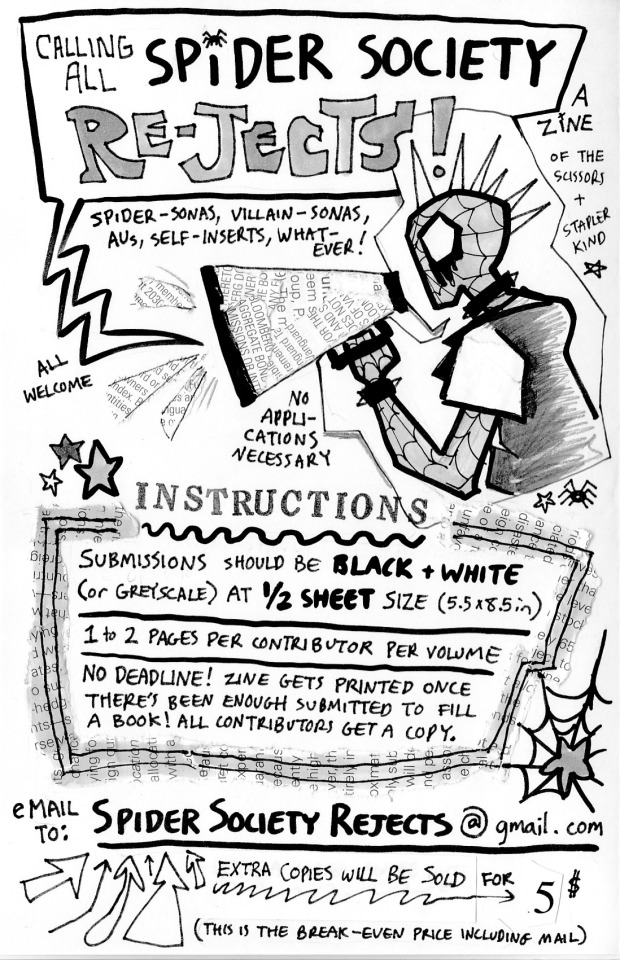 CALLING
ALL
SPiDER SOCIETY
RE-JECTS!
A
ZiNE
OF THE
SCISSORS
+
STAPLER
KIND
SPIDER-SONAS, VILLAIN-SONAS,
AUs, SELF-INSERTS, WHAT-
EVER!
ALL
WELCOME
NO
APPLI-
CATIONS
NECESSARY
INSTRUCTIONS
SUBMISSIONS SHOULD BE BLACK + WHITE
(or GREYSCALE) AT 1/2 SHEET SIZE (5.5x8.5in)
1 to 2 PAGES PER CONTRIBUTOR PER VOLUME
NO DEADLINE! ZINE GETS PRINTED ONCE
THERE'S BEEN ENOUGH SUBMITTED TO FILL
A BOOK! ALL CONTRIBUTORS GET A COPY.
eMAIL
TO:
SPIDER SOCIETY REJECTS @ gmail.com
EXTRA COPIES WILL BE SOLD FOR 5$
(THIS IS THE BREAK-EVEN PRICE INCLUDING MAIL)